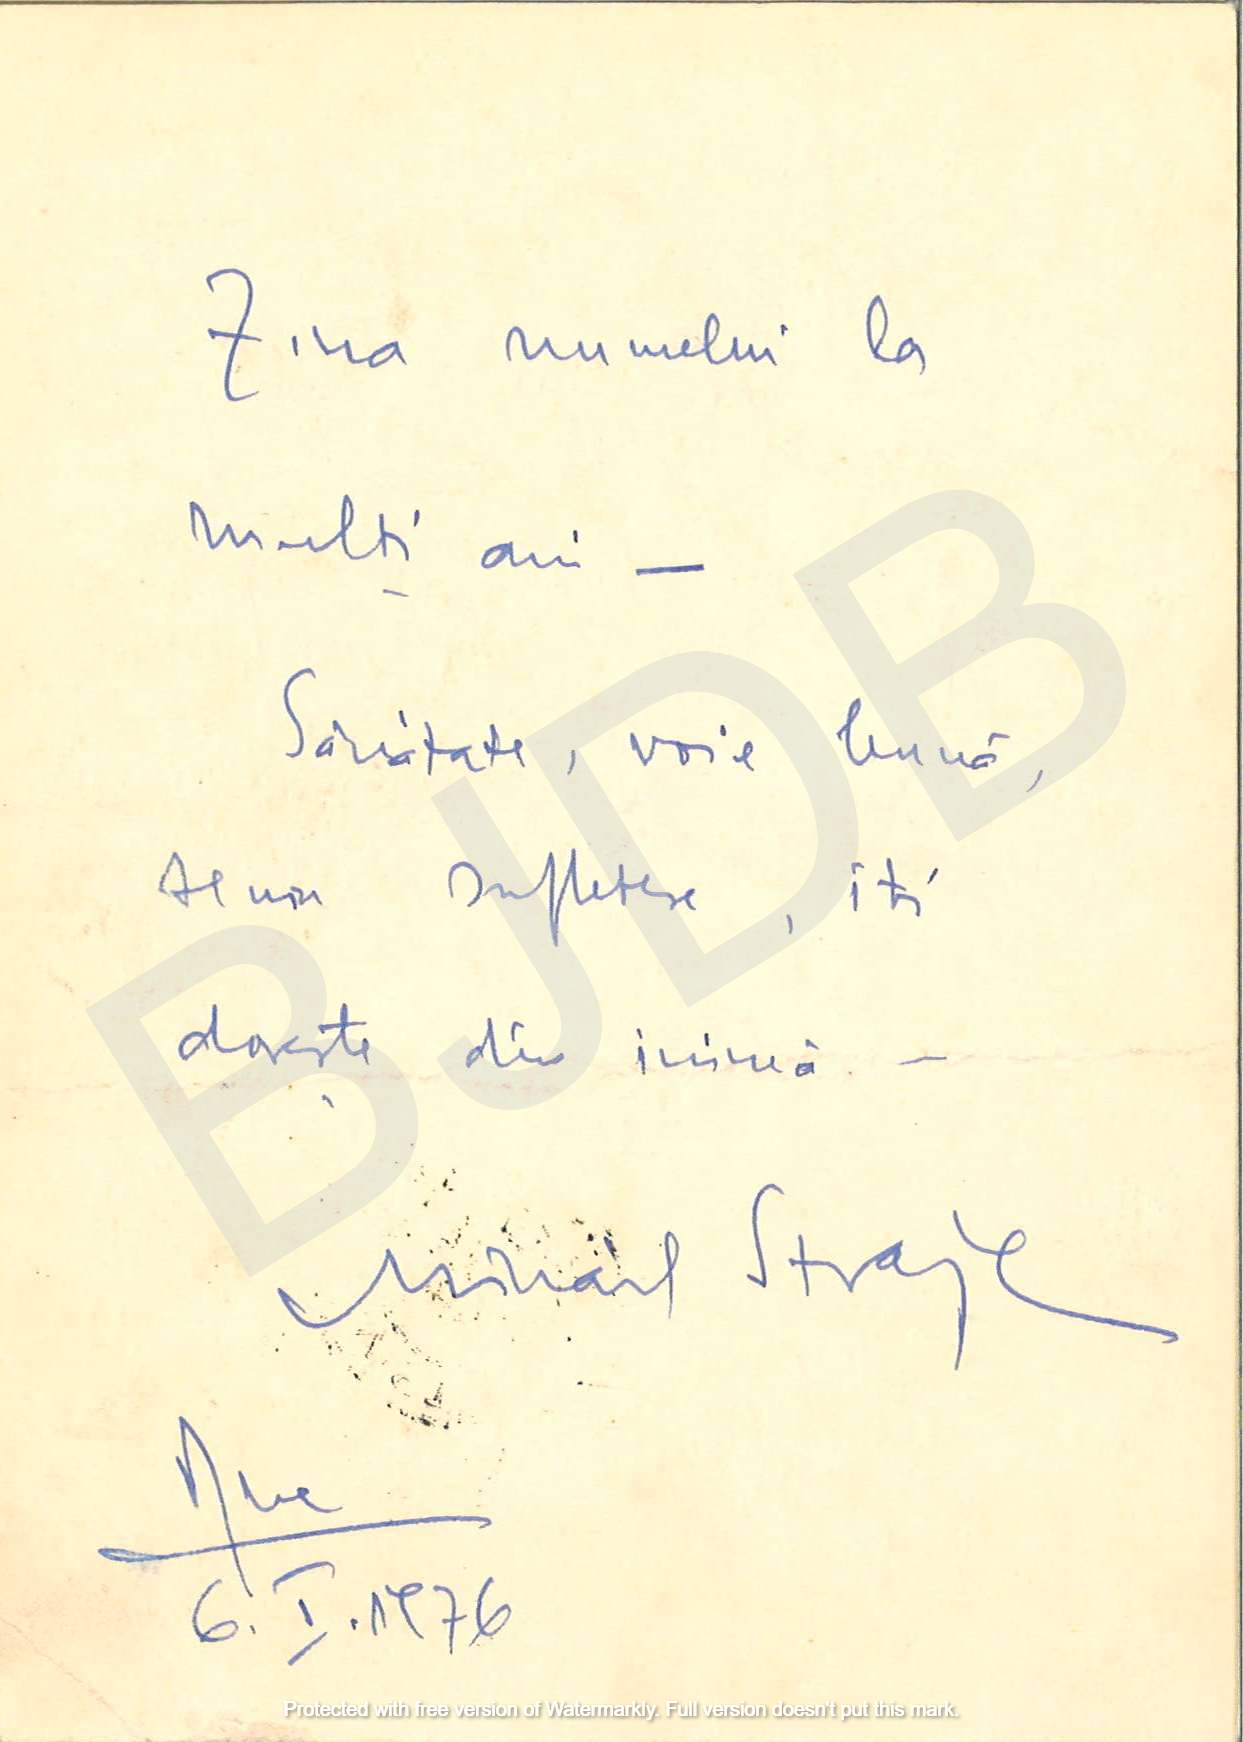 Ziua numelui la
mulți ani —
Sănătate, voie bună,
senin sufletesc, iți
dorește din inimă —
Mihail Straje
6. I. 1976
BJDB
Protected with free version of Watermarkly. Full version doesn't put this mark.